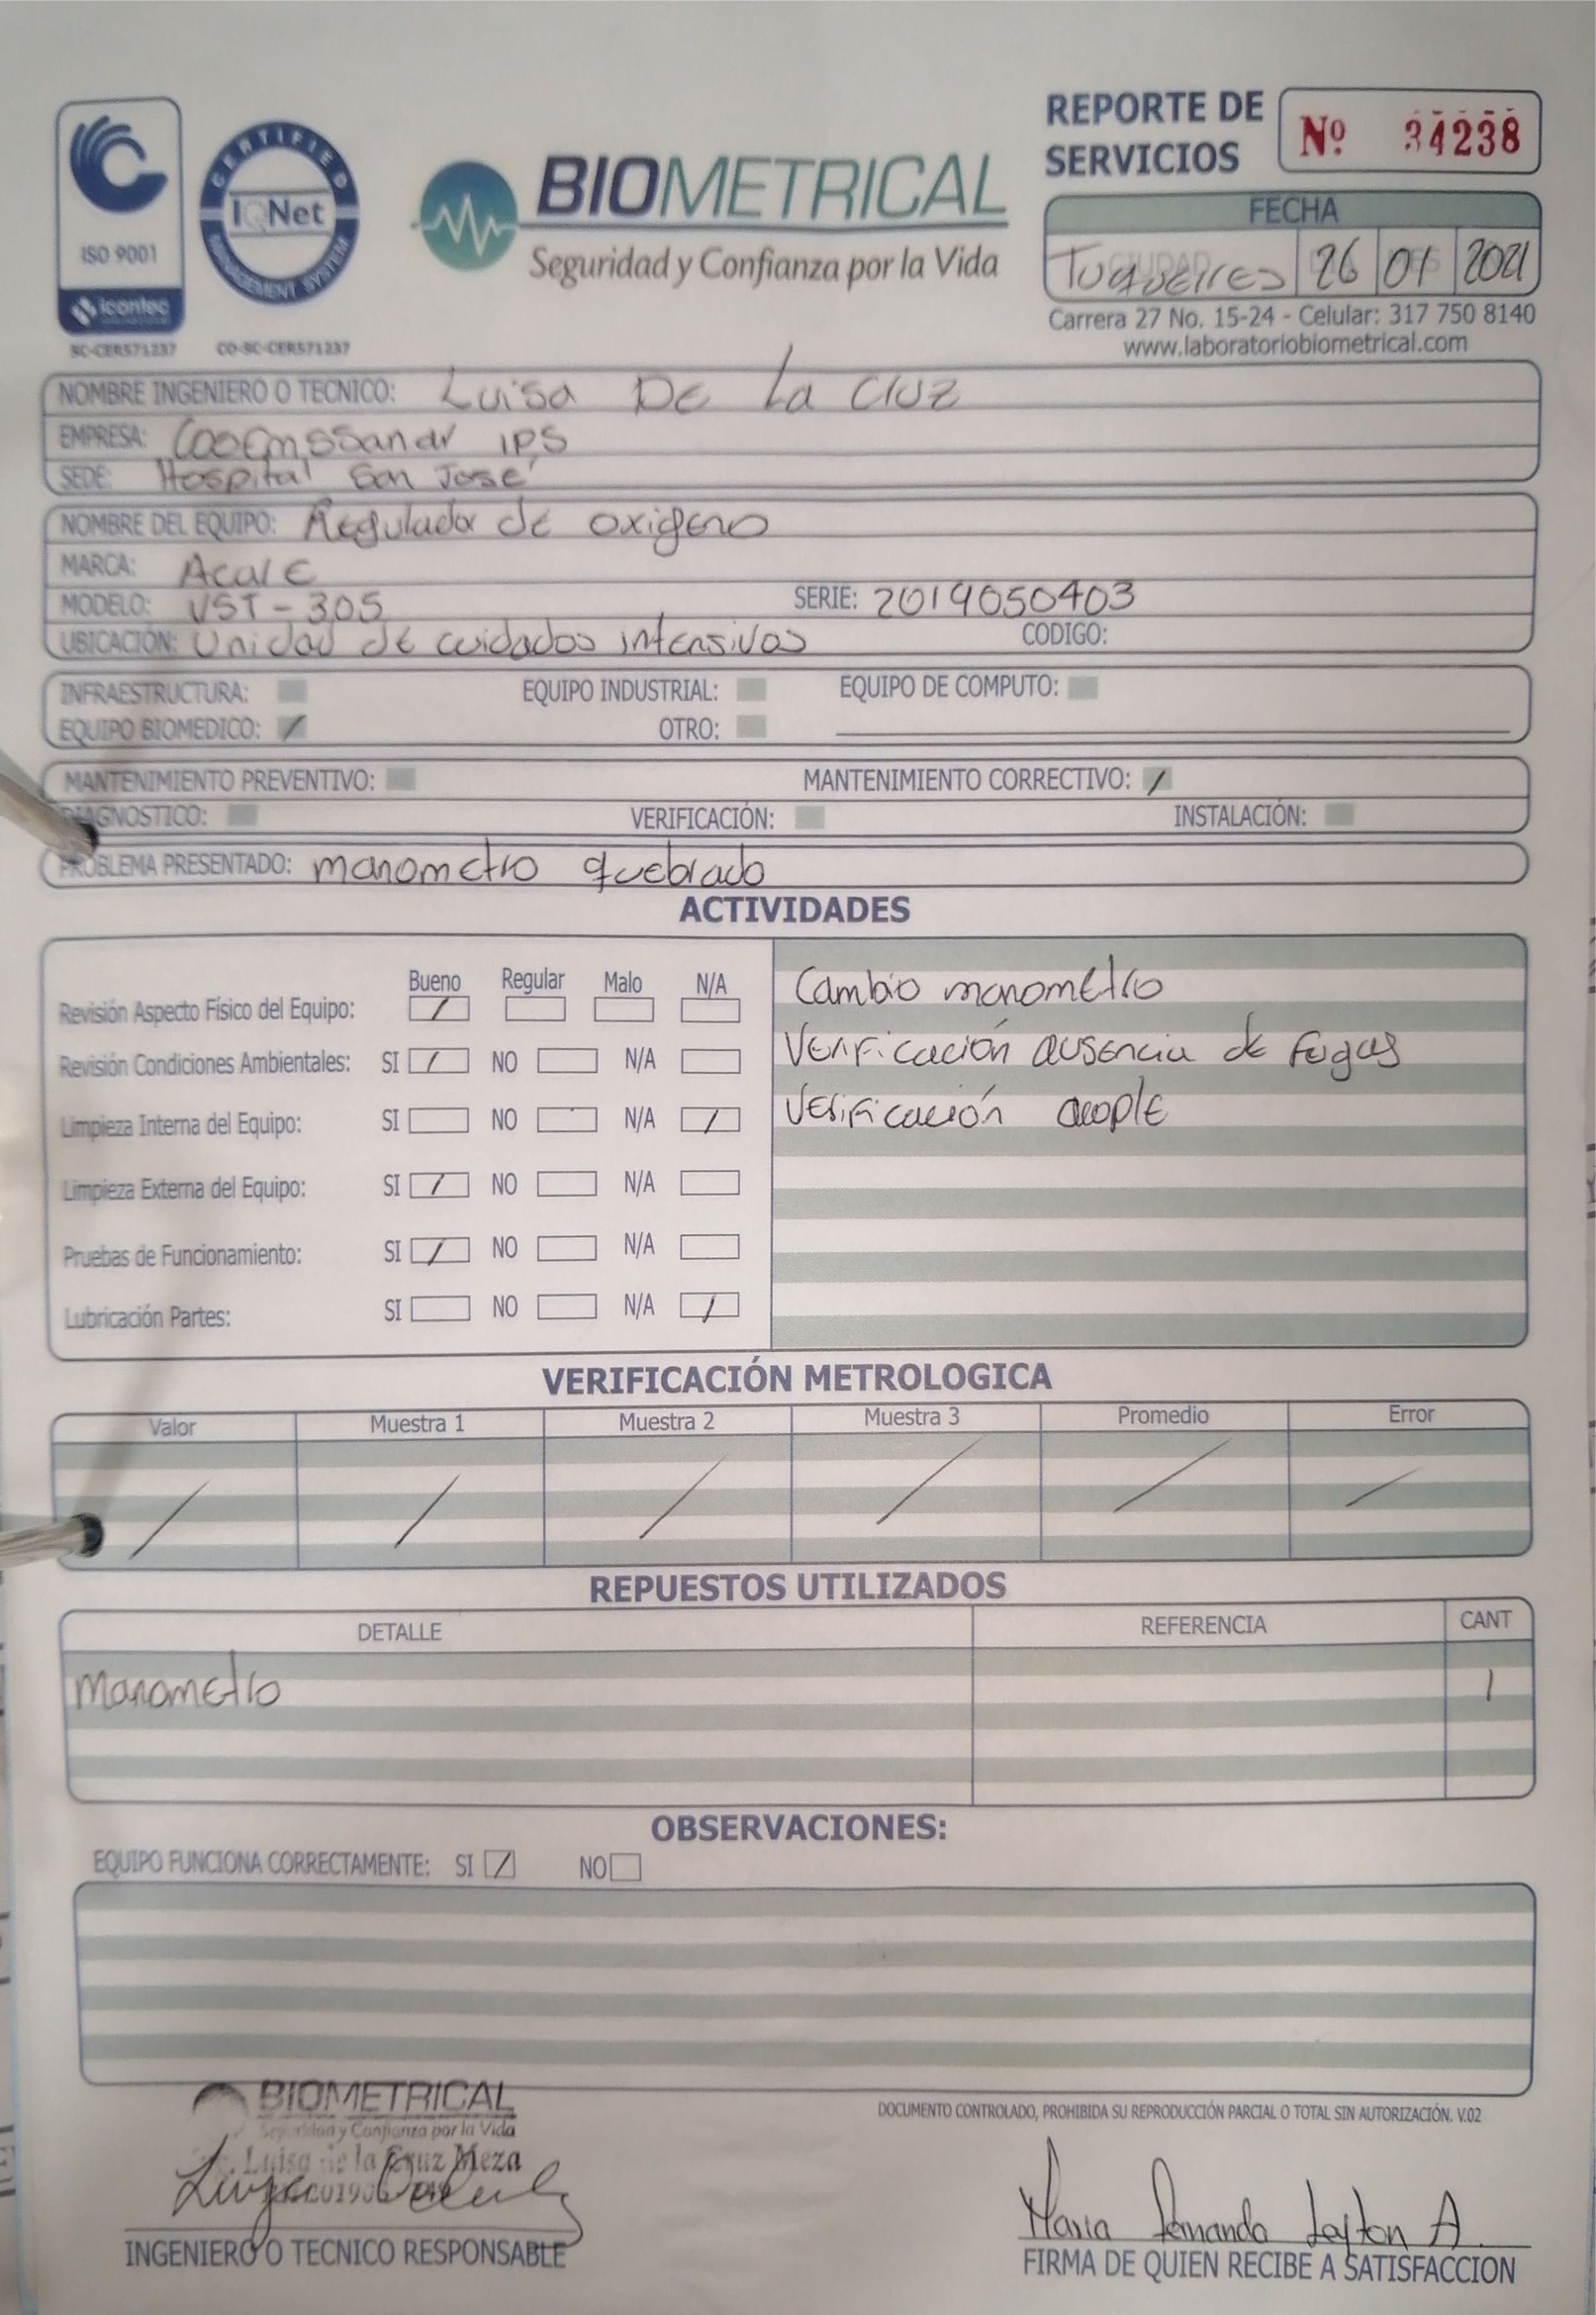 REPORTE DE
SERVICIOS
Nº 34238
ISO 9001
icontec
SC-CER571237
CERTIFIED
IQNet
MANAGEMENT SYSTEM
CO-SC-CER571237
BIOMETRICAL
Seguridad y Confianza por la Vida
FECHA
Tuquerres 26 01 2021
Carrera 27 No. 15-24 - Celular: 317 750 8140
www.laboratoriobiometrical.com
NOMBRE INGENIERO O TECNICO: Luisa De La Cruz
EMPRESA: Coemssanar IPS
SEDE: Hospital San José
NOMBRE DEL EQUIPO: Regulador de oxigeno
MARCA: Acare
MODELO: VST-305 SERIE: 2019050403
UBICACIÓN: Unidad de cuidados intensivos CODIGO:
INFRAESTRUCTURA: EQUIPO INDUSTRIAL: EQUIPO DE COMPUTO:
EQUIPO BIOMEDICO: / OTRO:
MANTENIMIENTO PREVENTIVO: MANTENIMIENTO CORRECTIVO: /
DIAGNOSTICO: VERIFICACIÓN: INSTALACIÓN:
PROBLEMA PRESENTADO: manometro quebrado
ACTIVIDADES
Bueno Regular Malo N/A
Revisión Aspecto Físico del Equipo: /
Revisión Condiciones Ambientales: SI / NO N/A
Limpieza Interna del Equipo: SI NO N/A /
Limpieza Externa del Equipo: SI / NO N/A
Pruebas de Funcionamiento: SI / NO N/A
Lubricación Partes: SI NO N/A /
Cambio manometro
Verificación ausencia de fugas
Verificación acople
VERIFICACIÓN METROLOGICA
Valor Muestra 1 Muestra 2 Muestra 3 Promedio Error
/ / / / / /
REPUESTOS UTILIZADOS
DETALLE REFERENCIA CANT
manometro 1
OBSERVACIONES:
EQUIPO FUNCIONA CORRECTAMENTE: SI / NO
BIOMETRICAL
Seguridad y Confianza por la Vida
Luisa de la Cruz Meza
DOCUMENTO CONTROLADO, PROHIBIDA SU REPRODUCCIÓN PARCIAL O TOTAL SIN AUTORIZACIÓN. V.02
Maria Fernanda Leyton A.
INGENIERO O TECNICO RESPONSABLE
FIRMA DE QUIEN RECIBE A SATISFACCION